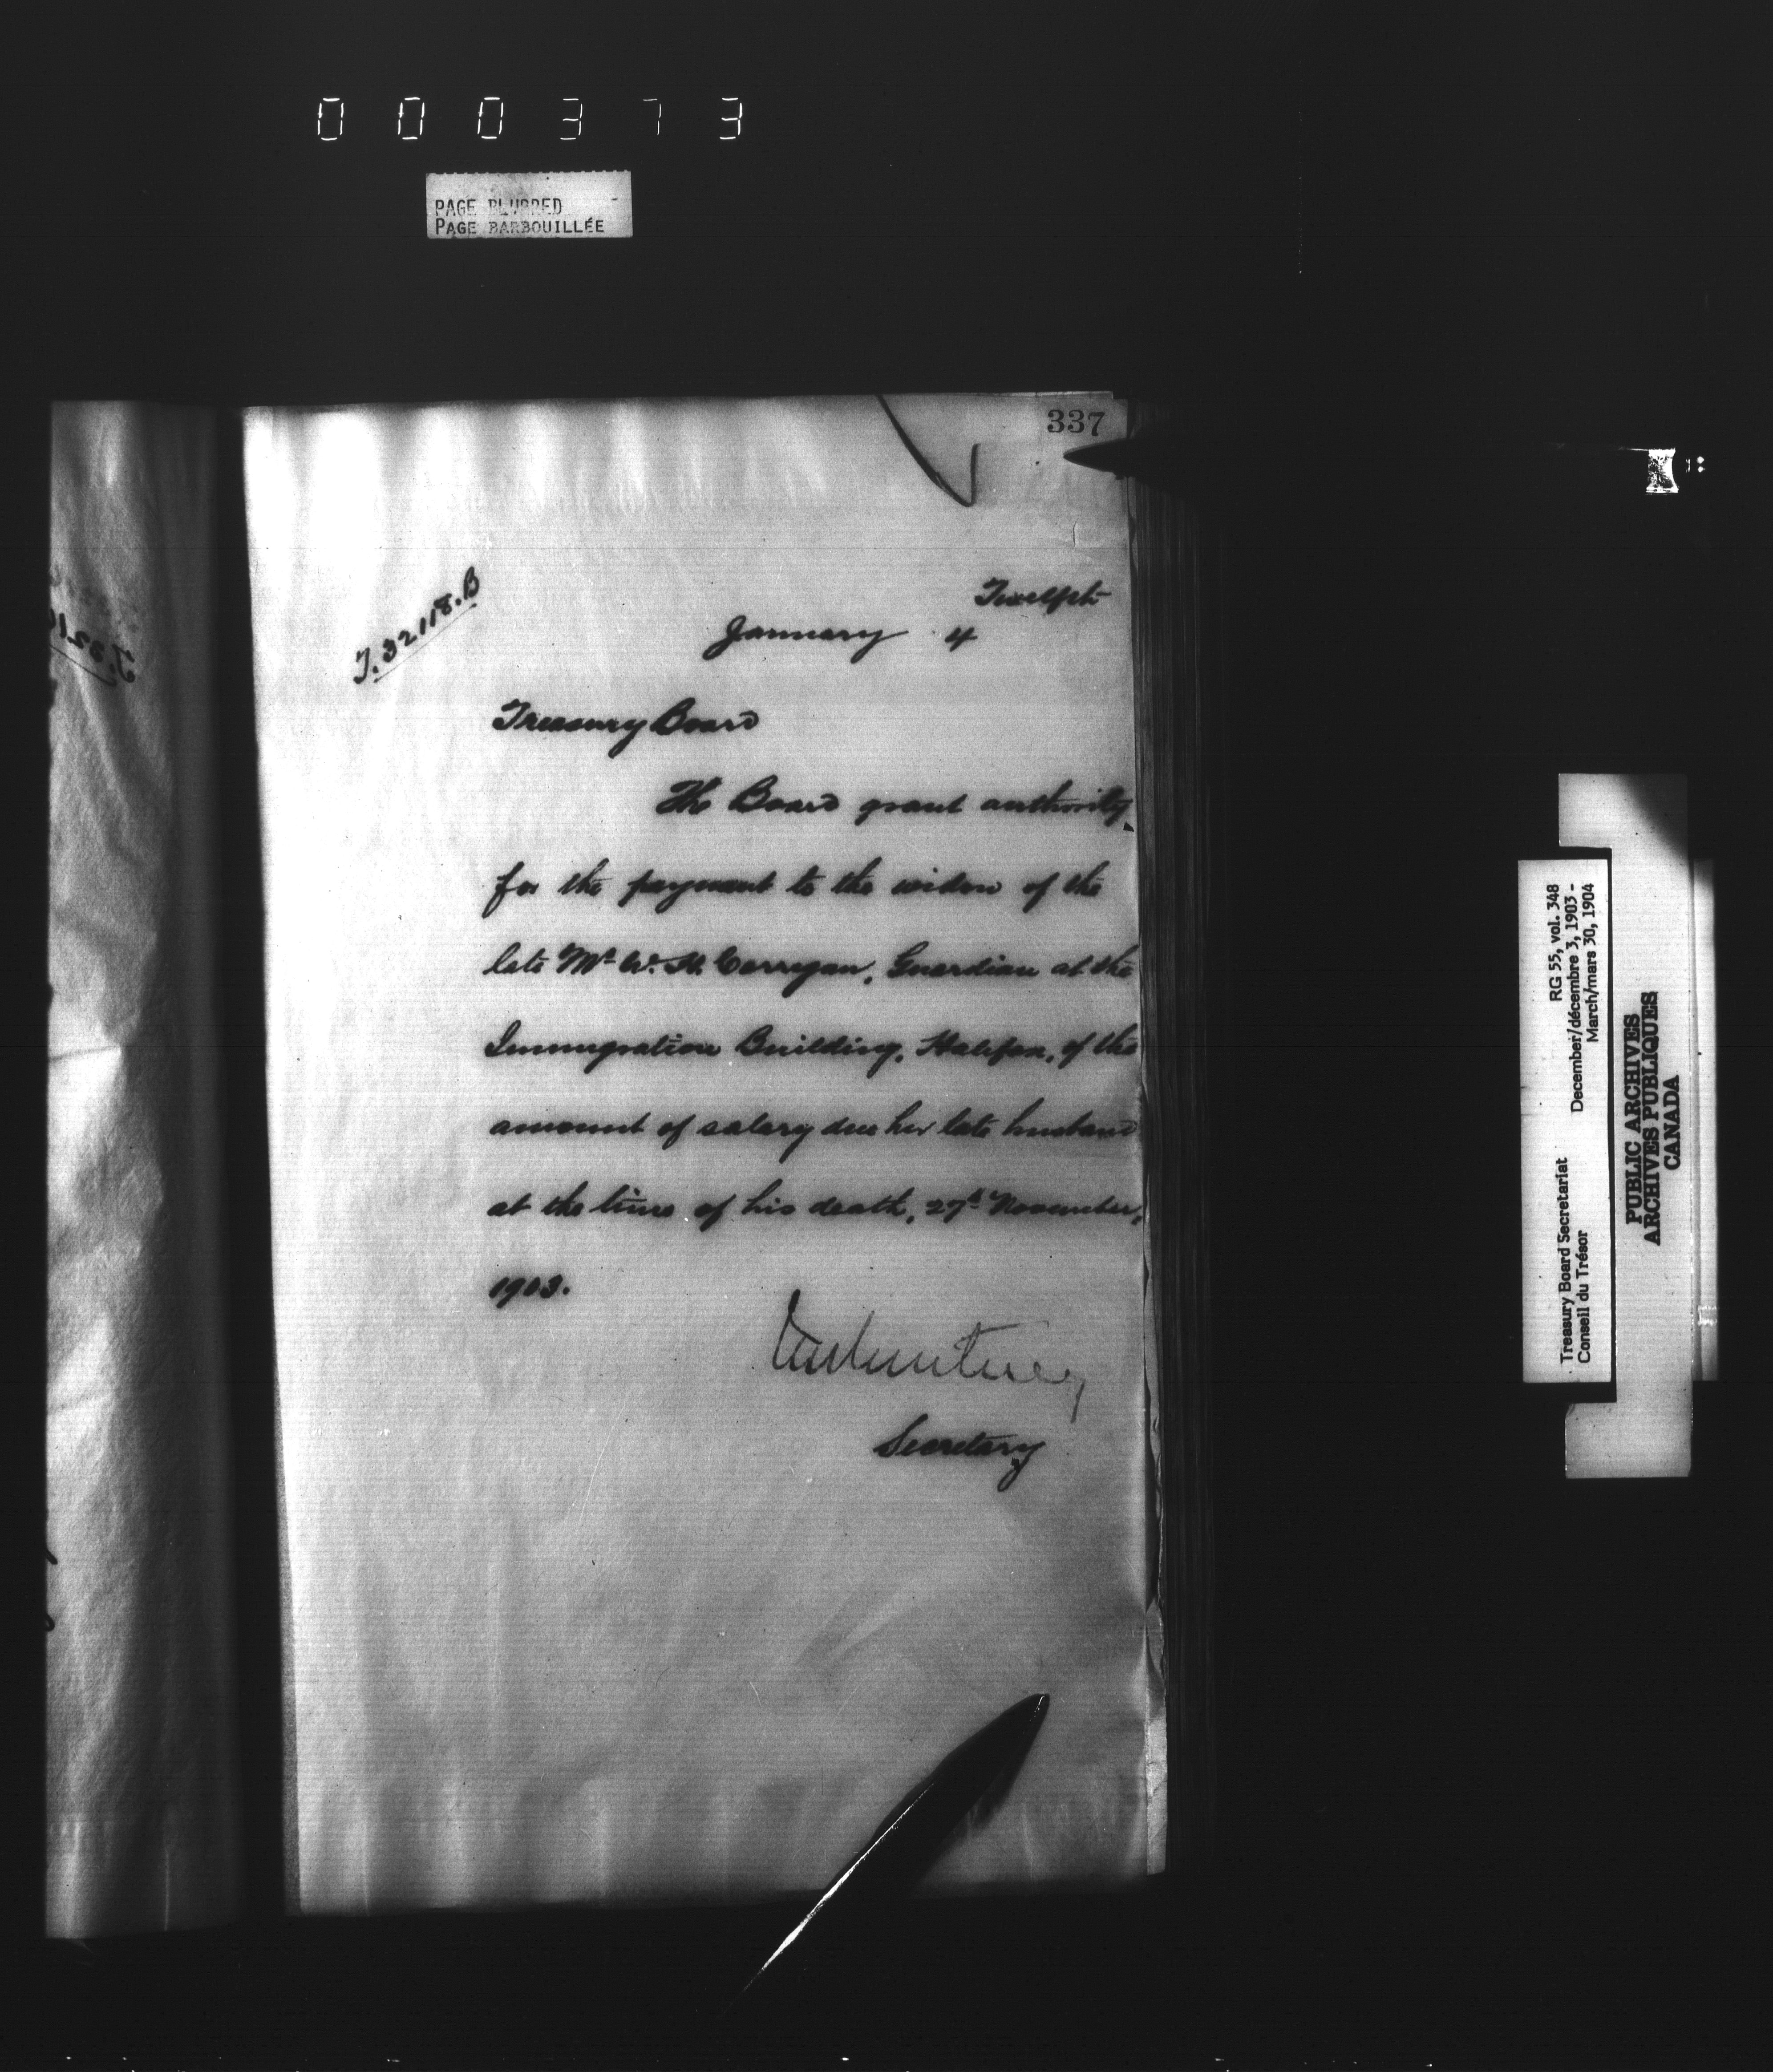 000373
PAGE BLURRED
PAGE BARBOUILLÉE
337
T.32118.B
Twelfth
January 4
Treasury Board
The Board grant authority
for the payment to the widow of the
late Mr W. H. Corrigan, Guardian at the
Immigration Building, Halifax, of the
amount of salary due her late husband
at the time of his death, 27th November,
1903.
Secretary
Treasury Board Secretariat RG 55, vol. 348
Conseil du Trésor December/décembre 3, 1903 -
March/mars 30, 1904
PUBLIC ARCHIVES
ARCHIVES PUBLIQUES
CANADA